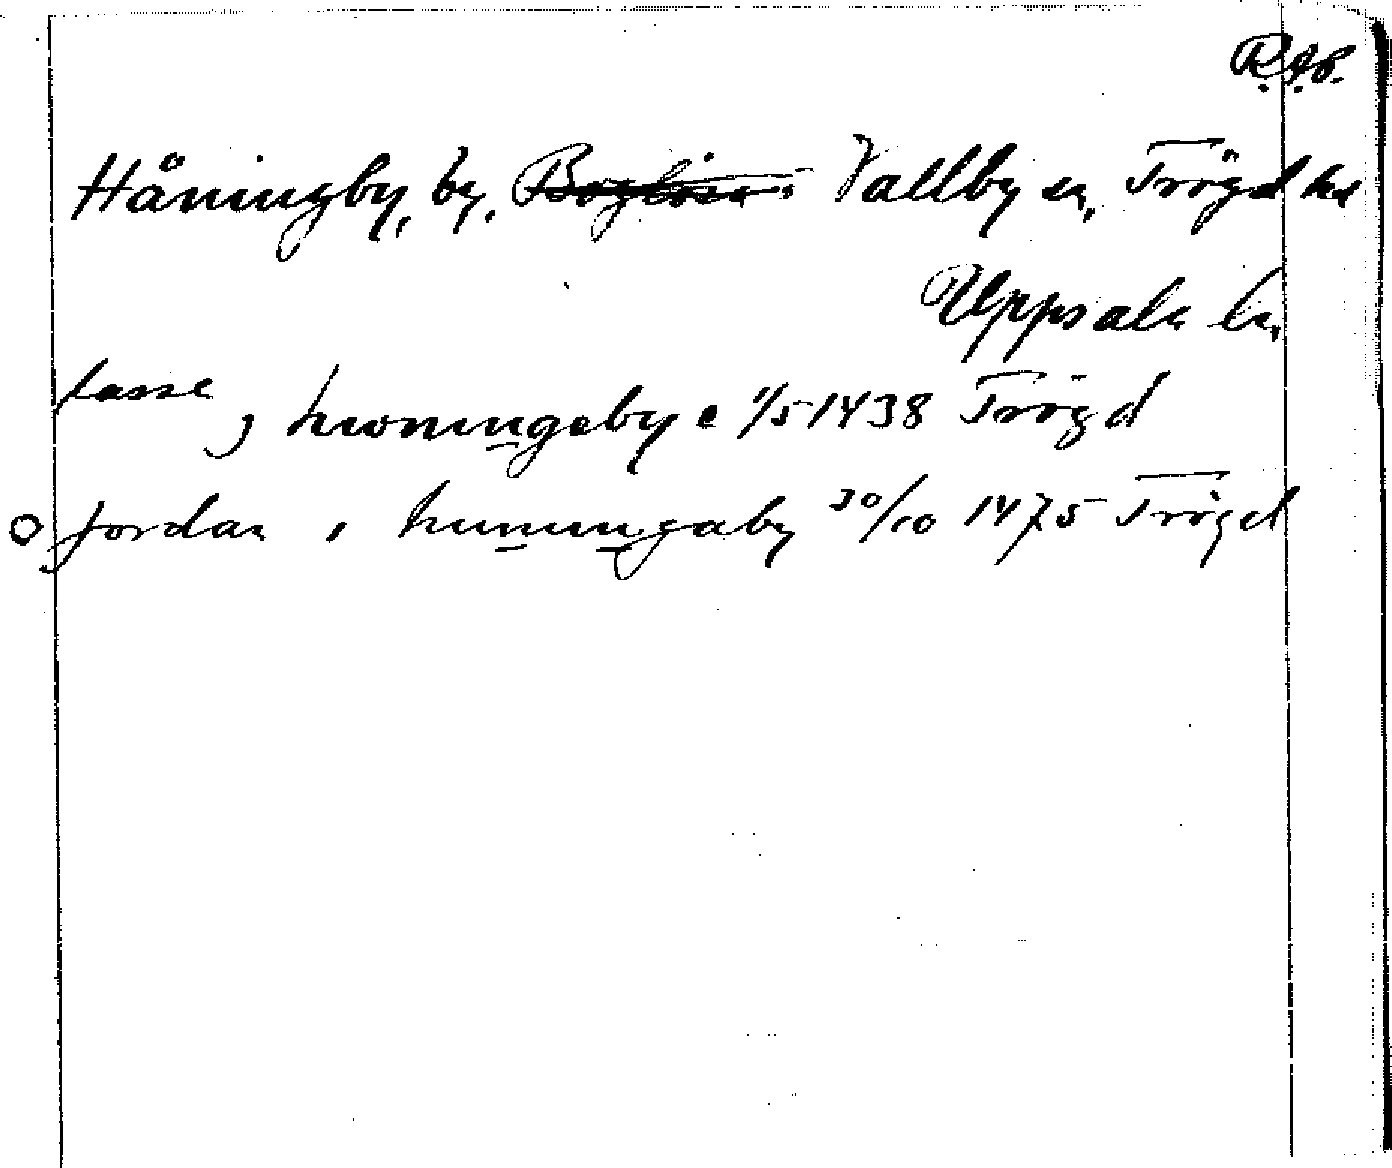 R.A.P.
Håningby, by, Boglösa Vallby sn, Trögd hd
Uppsala ln,
lasse
j hwoningeby e 1/5 1438 Trögd
jordan i huningaby 30/10 1475 Trögd